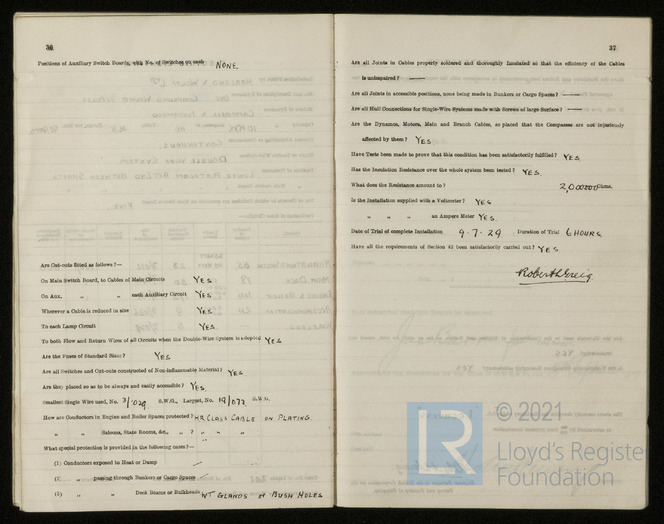 36
Positions of Auxiliary Switch Boards, with No. of Switches on each NONE.
Are Cut-outs fitted as follows?—
On Main Switch Board, to Cables of Main Circuits YES
On Aux. „ „ each Auxiliary Circuit YES
Wherever a Cable is reduced in size YES
To each Lamp Circuit YES.
To both Flow and Return Wires of all Circuits when the Double-Wire System is adopted YES
Are the Fuses of Standard Sizes? YES
Are all Switches and Cut-outs constructed of Non-inflammable Material? YES
Are they placed so as to be always and easily accessible? YES.
Smallest Single Wire used, No. 3/.029 S.W.G., Largest, No. 19/.072 S.W.G.
How are Conductors in Engine and Boiler Spaces protected? H.R. CLASS CABLE ON PLATING.
„ „ Saloons, State Rooms, &c., „ ? „ „ „ „
What special protection is provided in the following cases?—
(1) Conductors exposed to Heat or Damp
(2) „ passing through Bunkers or Cargo Spaces
(3) „ „ Deck Beams or Bulkheads WT GLANDS OR BUSH HOLES
37
Are all Joints in Cables properly soldered and thoroughly insulated so that the efficiency of the Cables
is unimpaired? —
Are all Joints in accessible positions, none being made in Bunkers or Cargo Spaces? —
Are all Hull Connections for Single-Wire Systems made with Screws of large Surface? —
Are the Dynamos, Motors, Main and Branch Cables, so placed that the Compasses are not injuriously
affected by them? YES
Have Tests been made to prove that this condition has been satisfactorily fulfilled? YES
Has the Insulation Resistance over the whole system been tested? YES.
What does the Resistance amount to? 2,000000 Ohms.
Is the Installation supplied with a Voltmeter? YES
„ „ „ an Ampere Meter YES.
Date of Trial of complete Installation 9-7-29 Duration of Trial 6 HOURS
Have all the requirements of Section 42 been satisfactorily carried out? YES
Robert Greig.
© 2021
LR
Lloyd's Register
Foundation